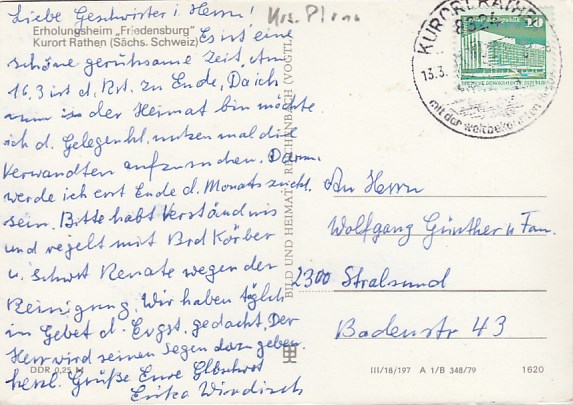 Liebe Geschwister i. Herrn!
Erholungsheim „Friedensburg"
Kurort Rathen (Sächs. Schweiz)
Es ist eine
schöne geruhsame Zeit. Am
16.3 ist d. Rst. zu Ende, Da ich
nun in der Heimat bin möchte
ich d. Gelegenht. nutzen mal die
Verwandten aufzusuchen. Darum
werde ich erst Ende d. Monats zurück
sein. Bitte habt Verständnis
und regelt mit Brd Körber
u. Schwst Renate wegen der
Reinigung. Wir haben täglich
im Gebet d. gedacht, Der
Herr wird seinen Segen dazu geben.
herzl. Grüße Eure
Erika Windisch
DDR 0,25 M
BILD UND HEIMAT REICHENBACH (VOGTL
KURORT RATHEN
13.3.
mit der weltbekannten
10
An Herrn
Wolfgang Günther u Fam.
2300 Stralsund
Badenstr 43
III/18/197 A 1/B 348/79
1620